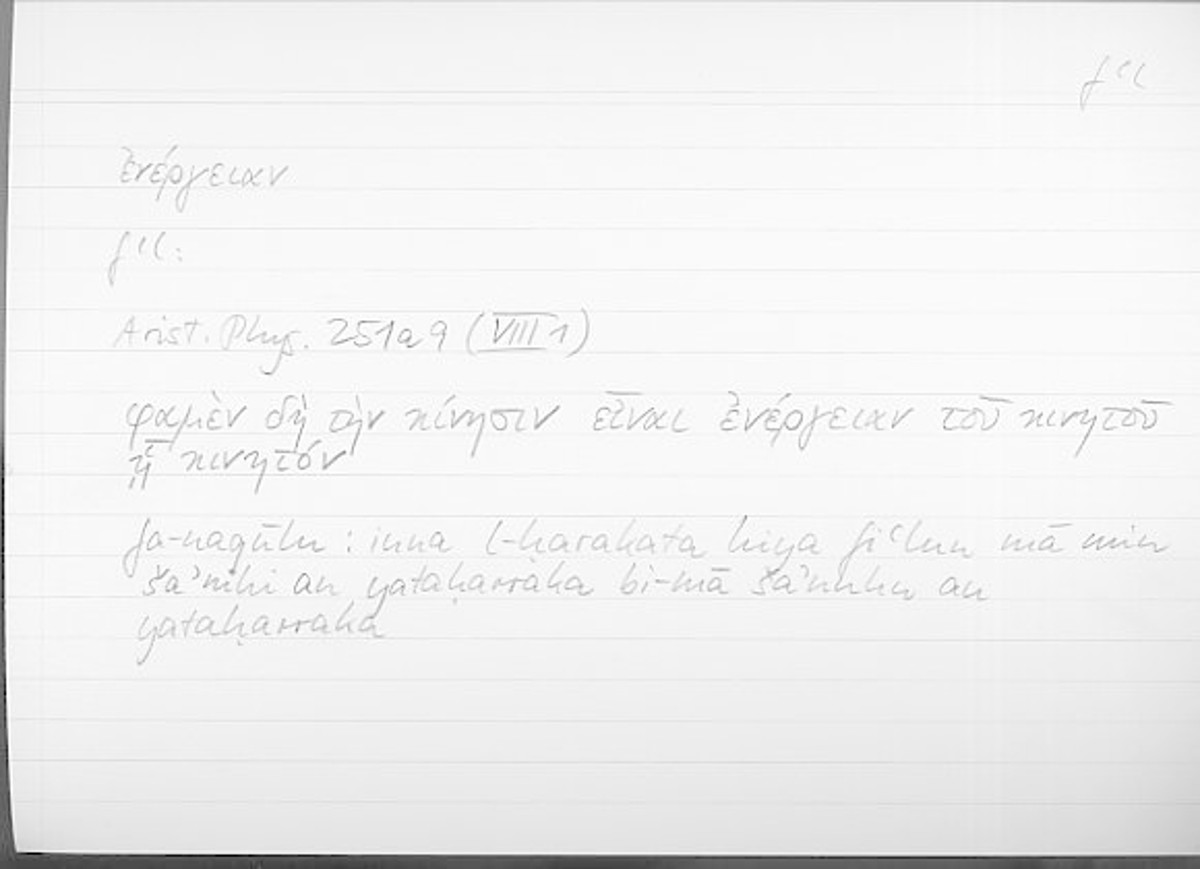 fʿl
ἐνέργειαν
fʿl:
Arist. Phys. 251a9 (VIII 1)
φαμὲν δὴ τὴν κίνησιν εἶναι ἐνέργειαν τοῦ κινητοῦ
ᾗ κινητόν
fa-naqūlu : inna l-ḥarakata hiya fiʿlun mā min
šaʾnihi an yataḥarraka bi-mā šaʾnuhu an
yataḥarraka